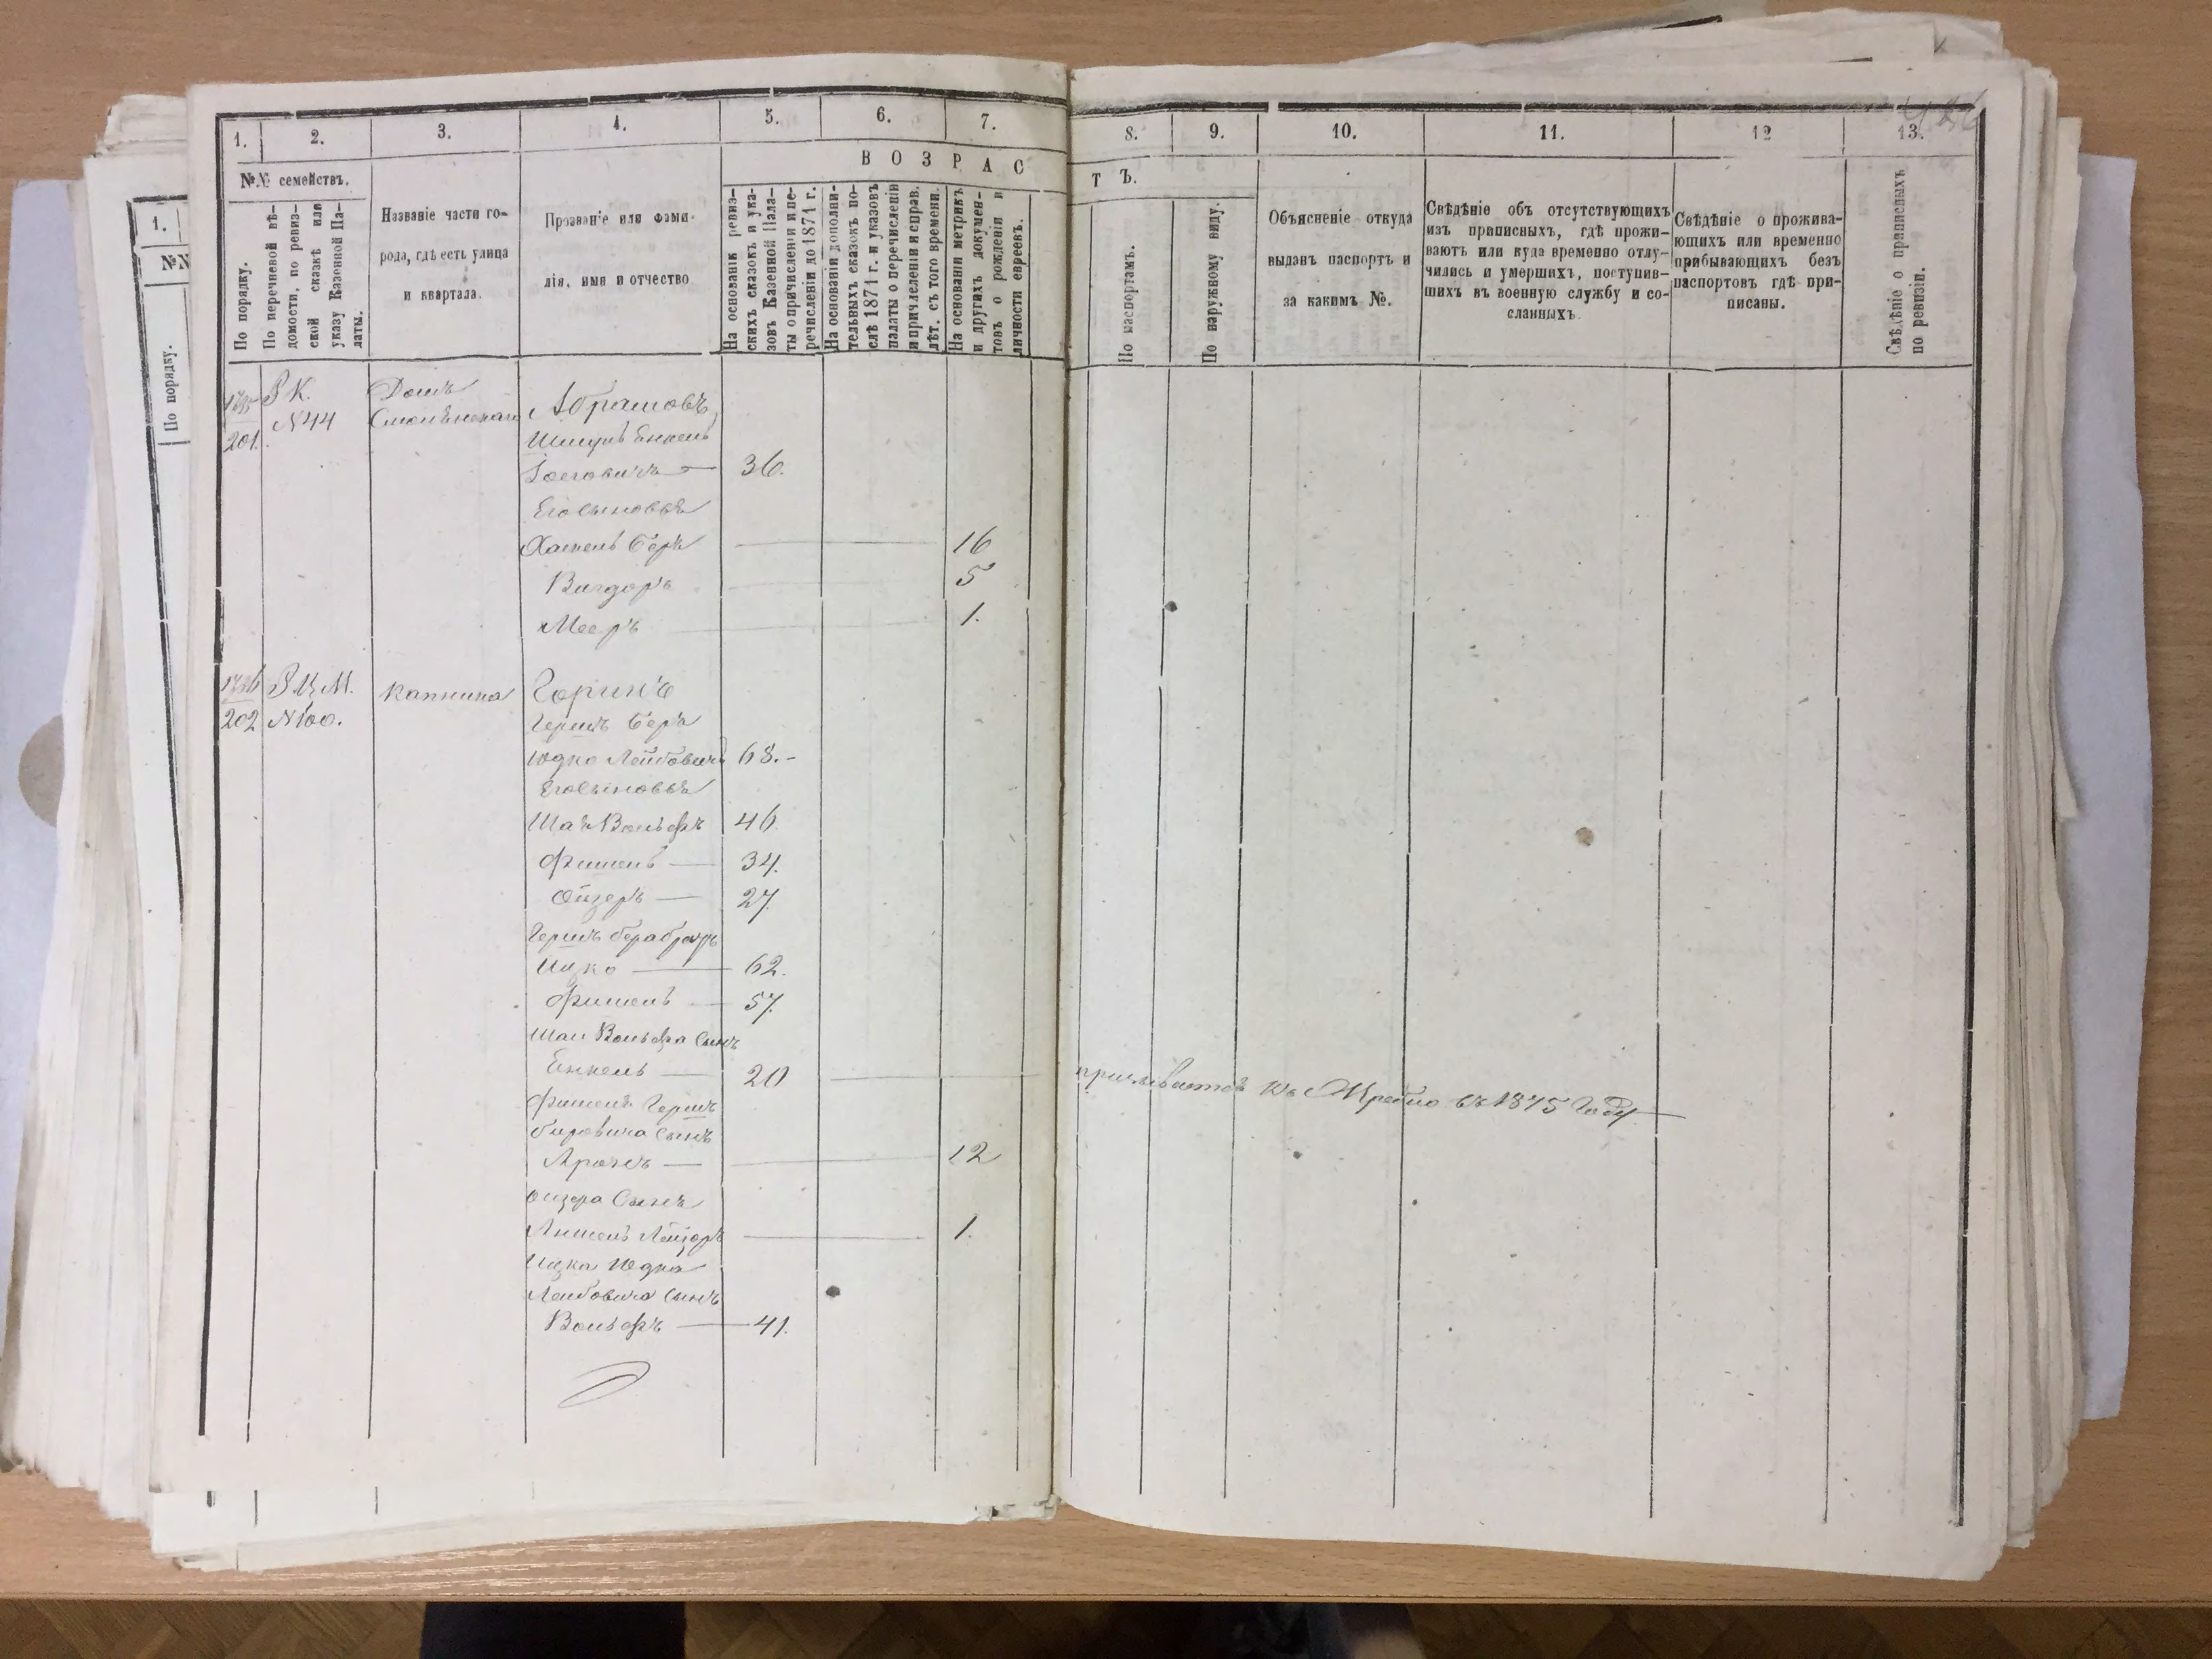 1. 2. 3. 4. 5. 6. 7. 8. 9. 10. 11. 12 13.
№№ семействъ.
ВОЗРАС
ТЪ.
По порядку.
По перечневой вѣ-
домости, по ревиз-
ской сказкѣ или
указу Казенной Па-
латы.
Названіе части го-
рода, гдѣ есть улица
и квартала.
Прозваніе или фами-
лія, имя и отчество
На основаніи ревиз-
скихъ сказокъ и ука-
зовъ Казенной Пала-
ты о причисленіи и пе-
речисленіи до 1871 г.
На основаніи дополни-
тельныхъ сказокъ по-
слѣ 1871 г. и указовъ
палаты о перечисленіи
и причисленіи и справ.
лѣт. съ того времени.
На основаніи метрикъ
и другихъ докумен-
товъ о рожденіи и
личности евреевъ.
По паспортамъ.
По наружному виду.
Объясненіе откуда
выданъ паспортъ и
за какимъ №.
Свѣдѣніе объ отсутствующихъ
изъ приписныхъ, гдѣ прожи-
ваютъ или куда временно отлу-
чились и умершихъ, поступив-
шихъ въ военную службу и со-
сланныхъ.
Свѣдѣніе о прожива-
ющихъ или временно
прибывающихъ безъ
паспортовъ гдѣ при-
писаны.
Свѣдѣніе о приписныхъ
по ревизіи.
1.
№№
По порядку.
201. Р К. №44 Домъ
Абрамовъ
Енкель
36.
Его сыновья
Хаткель Беръ 16
Вигдоръ 5
Мееръ 1.
202 Р Ц М. №100. Капнина Горинъ
Гершъ Беръ
Юдко Лейбовичъ 68.-
Его сыновья
Шая Вольфъ 46
Фишель 34.
Ойзеръ 27.
Гершъ Бера братъ
Ицко 62.
Фишель 57.
Шаи Вольфа сынъ
Енкель 20 призывается къ Жребію въ 1875 году
Фишеля Гершъ
Беровича сынъ
Аронъ 12
Оизера сынъ
Аншель Лейзоръ 1.
Ицка Юдка
Лейбовича сынъ
Вольфъ 41.